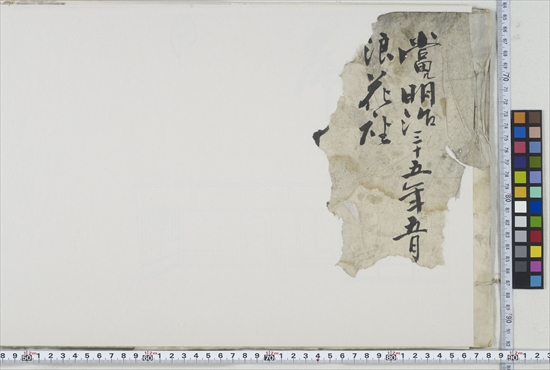 當明治三十五年五月
浪花座